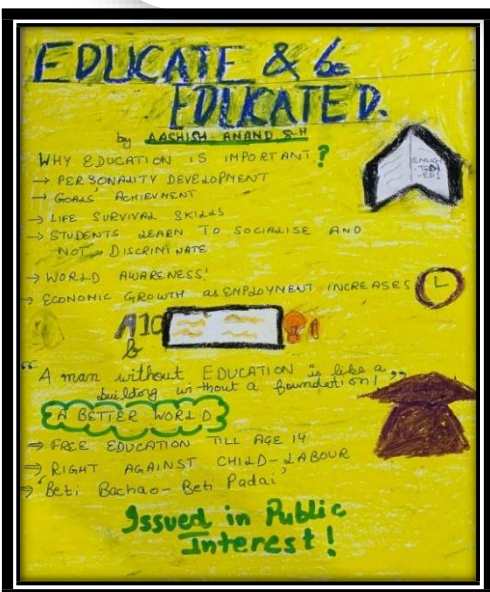 EDUCATE & be
EDUCATED.
by AASHISH ANAND 8-H
WHY EDUCATION IS IMPORTANT?
→ PERSONALITY DEVELOPMENT
→ GOALS' ACHIEVMENT
→ LIFE SURVIVAL SKILLS
→ STUDENTS LEARN TO SOCIALISE AND
NOT DISCRIMINATE
→ WORLD AWARENESS!
→ ECONOMIC GROWTH as EMPLOYMENT INCREASES
A 10
b
"A man without EDUCATION is like a
building without a foundation!"
A BETTER WORLD
⇒ FREE EDUCATION TILL AGE 14
⇒ RIGHT AGAINST CHILD-LABOUR
⇒ 'Beti Bachao- Beti Padai'
Issued in Public
Interest!